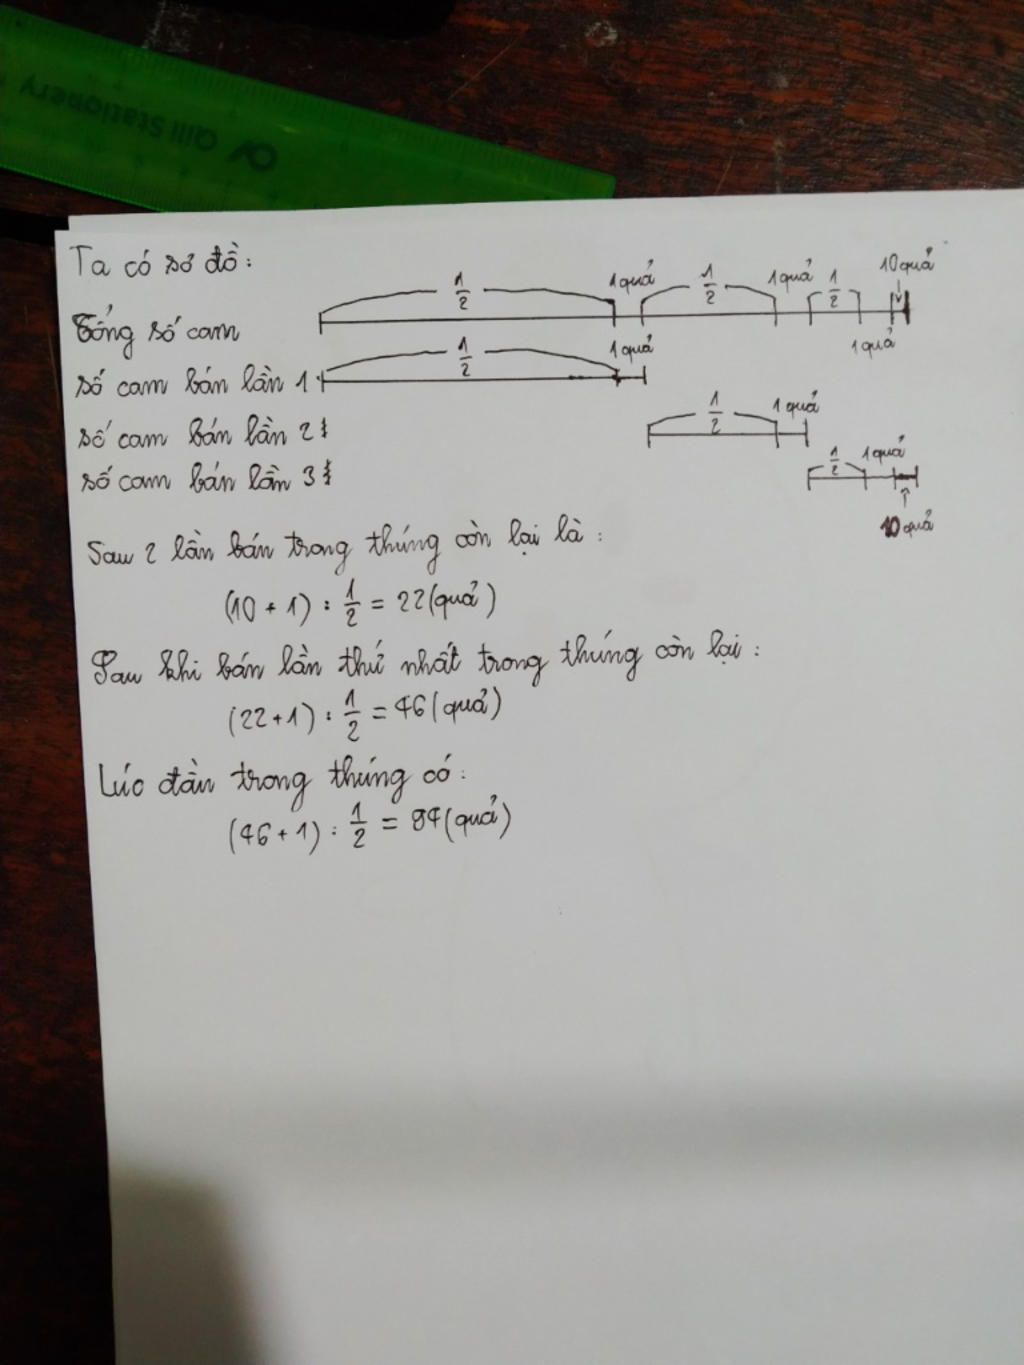 Qili Stationery
Ta có sơ đồ:
1/2 1quả 1/2 1quả 1/2 10quả
Tổng số cam
1quả
1/2 1quả
số cam bán lần 1:
1/2 1quả
số cam bán lần 2:
1/2 1quả
số cam bán lần 3:
10quả
Sau 2 lần bán trong thúng còn lại là :
(10 + 1) : 1/2 = 22(quả)
Sau khi bán lần thứ nhất trong thúng còn lại :
(22+1) : 1/2 = 46(quả)
Lúc đần trong thúng có:
(46+1) : 1/2 = 94(quả)